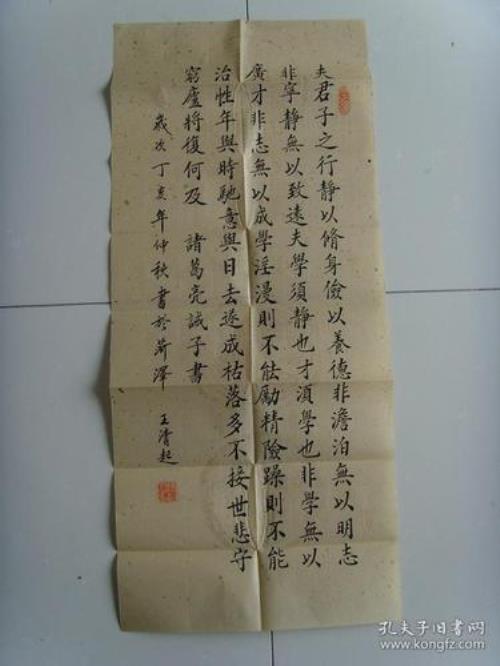 夫君子之行靜以脩身儉以養德非澹泊無以明志
非寧靜無以致遠夫學須靜也才須學也非學無以
廣才非志無以成學淫漫則不能勵精險躁則不能
治性年與時馳意與日去遂成枯落多不接世悲守
窮廬將復何及 諸葛亮誡子書
歲次丁亥年仲秋書於菏澤 王清起
孔夫子旧书网
kongfz.com